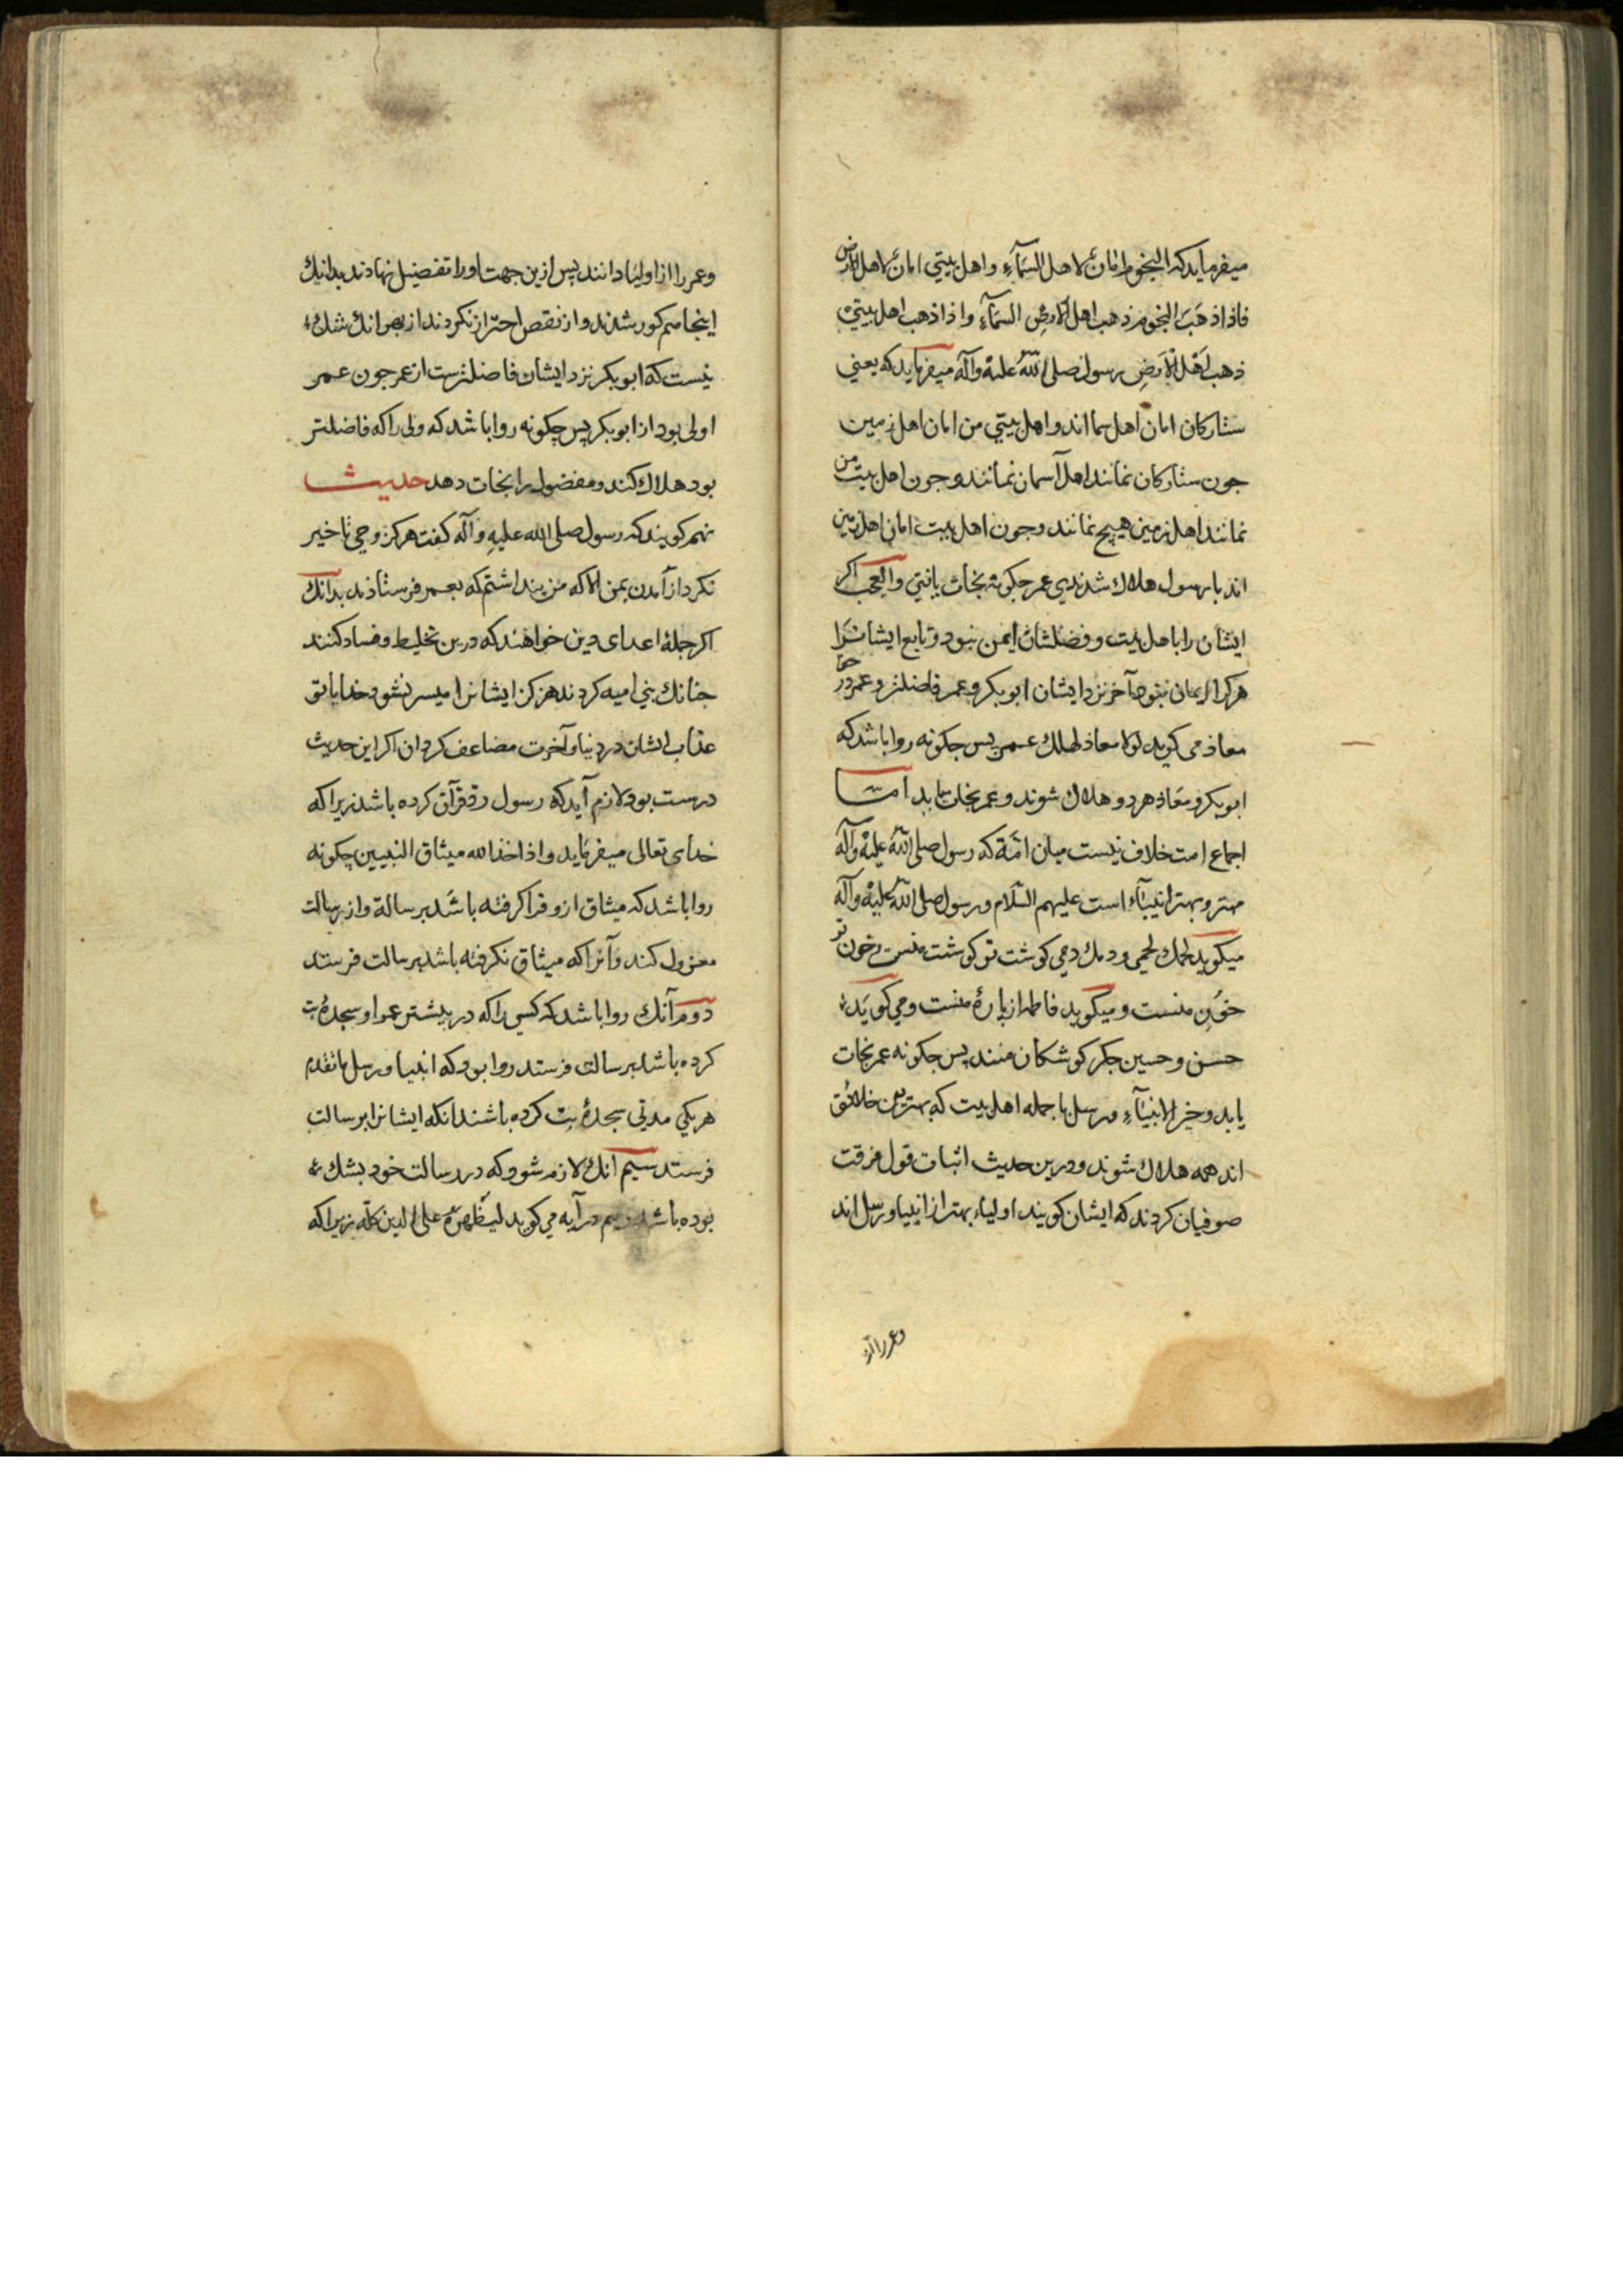 میفرماید که النجوم امان لاهل السمآء و اهل بیتي امان لاهل الارض
فاذا ذهبَ النجوم ذهب اهل السمآء و اذا ذهب اهل بیتي
ذهب اهل الارضِ رسول صلی اللهُ علیهْ وآله میفرماید که یعني
ستارکان امان اهل سما اند و اهل بیتي من امان اهل زمین
جون ستارکان نمانند اهل آسمان نمانند و جون اهل بیت من
نمانند اهل زمین هیچ نمانند و جون اهل بیت امان اهل زمین
اند با رسول هلاك شدندی عمر جکونه نجات یافتي والعجب اکر
ایشان را با اهل بیت و فضلشان ایمن نبود و تابع ایشانرا
هرکز ایمان نبود آخر نزد ایشان ابوبکر و عمر فاضلتر و عمر در حق
معاذ می کوید لولا معاذ لهلك عمر پس جکونه روا باشد که
ابوبکر و معاذ هر دو هلاك شوند و عمر نجات یابد امـا
اجماع امت خلاف نیست میان امّة که رسول صلی اللهُ علیهْ وآله
مهتر و بهتر انبیآء است علیهم السّلام و رسول صلی اللهُ علیهْ وآله
میکوید لحمك لحمي و دمك دمي کوشت تو کوشت منست و خون تو
خون منست و میکوید فاطمه از پارهٔ منست و مي کوید
حسن و حسین جکر کوشکان منند پس جکونه عمر نجات
یابد و خیر الانبیآء و رسل با جمله اهل بیت که بهترین خلائق
اند همه هلاك شوند و درین حدیث اثبات قول فرقت
صوفیان کردند که ایشان کویند اولیاء بهتر از انبیا و رسل اند
وعمر را از
وعمر را از اولیا دانند پس ازین جهت او را تفضیل نهادند بدانك
اینجا هم کور شدند و از نقص احتراز نکردند از بهر انك شك
نیست که ابوبکر نزد ایشان فاضلترست از عمر جون عمر
اولی بود از ابوبکر پس چکونه روا باشد که ولی را که فاضلتر
بود هلاك کند و مفضول را نجات دهد حدیث
نهم کویند که رسول صلی الله علیهِ وآله کفت هرکز وحي تاخیر
نکرد از آمدن بمن الا که من پنداشتم که بعمر فرستادند بدانك
اکر جملهٔ اعدای دین خواهند که درین تخلیط و فساد کنند
جنانك بني امیه کردند هرکز ایشانرا میسر نشود خدایا تو
عذاب ایشان در دنیا و آخرت مضاعف کردان اکر این حدیث
درست بود لازم آید که رسول ردّ قرآن کرده باشد زیرا که
خدای تعالی میفرماید و اذ اخذ الله میثاق النبیین چکونه
روا باشد که میثاق ازو فرا کرفته باشد برسالة و از رسالت
معزول کند و آنرا که میثاق نکرفته باشد برسالت فرستد
دوم آنك روا باشد که کسی را که در بیشتر عمر او سجدهٔ بت
کرده باشد برسالت فرستد روا بود که انبیا و رسل ما تقدم
هر یکي مدتی سجدهٔ بت کرده باشند انکه ایشانرا برسالت
فرستد سیم انك لازم شود که در رسالت خود بشك
بوده باشد در آیه مي کوید لیظهرهُ علی الدین کله زیرا که